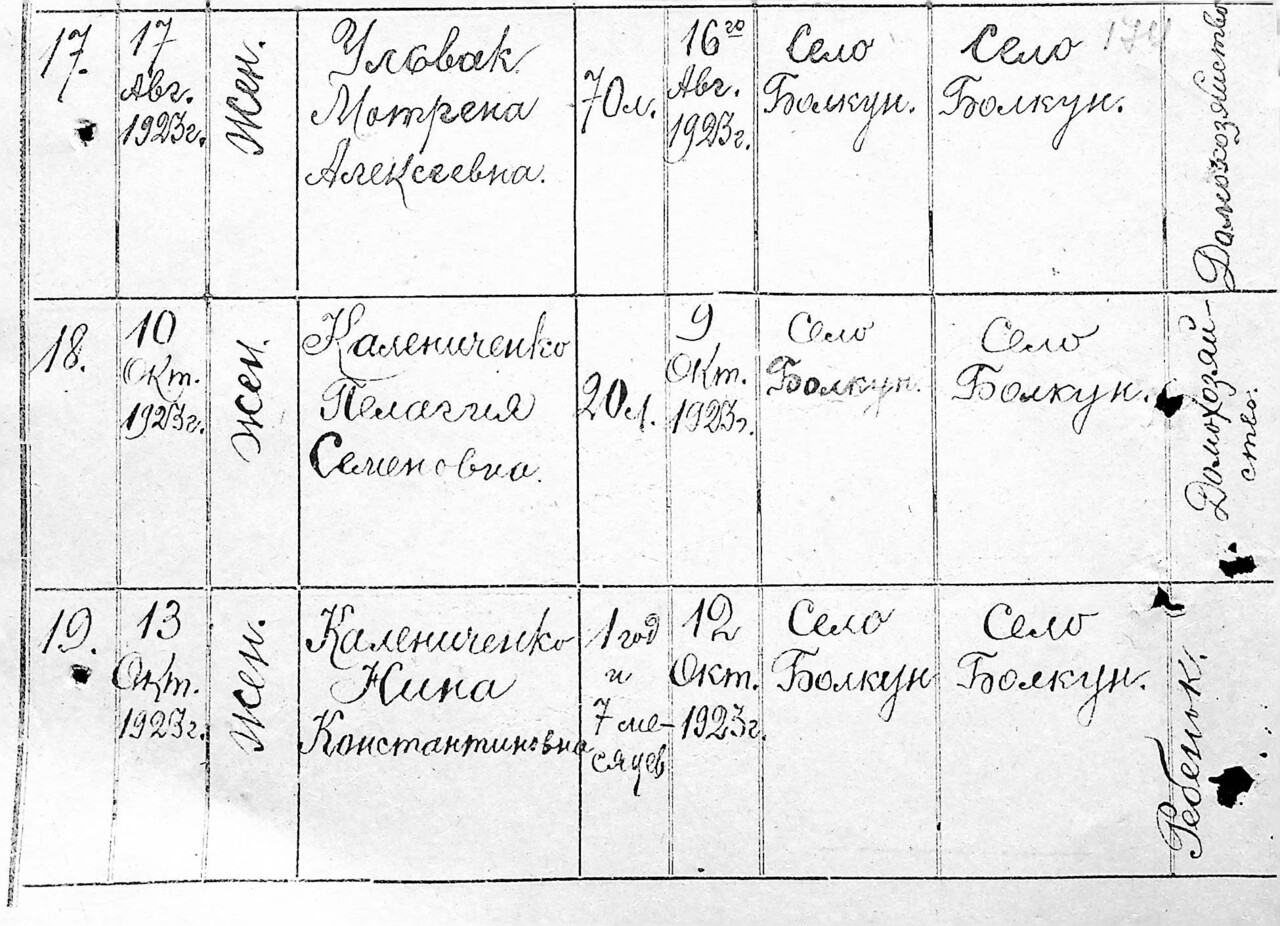 17.
17
Авг.
1923г.
Жен.
Уловак
Мотрена
Алексеевна.
70л.
16го
Авг.
1923г.
Село
Болкун.
Село
Болкун.
174
Домохозяйство
18.
10
Окт.
1923г.
жен.
Калениченко
Пелаггия
Семеновна.
20л.
9
Окт.
1923г.
Село
Болкун.
Село
Болкун.
Домохозяй-
ство.
19.
13
Окт.
1923г.
жен.
Калениченко
Нина
Константиновна
1 год
и
7 ме-
сяцев
12
Окт.
1923г.
Село
Болкун
Село
Болкун.
Ребенок.